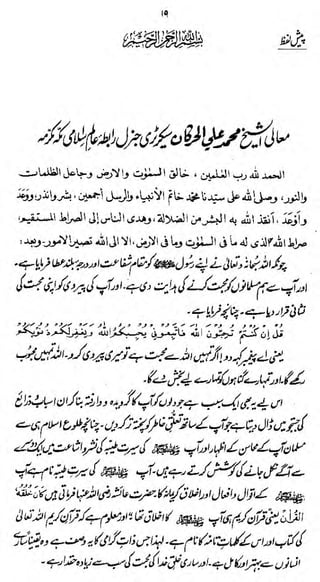 ۱۵
پیش لفظ
بِسْمِ اللّٰهِ الرَّحْمٰنِ الرَّحِيْمِ
معالی الشیخ محمد علی الحرکان سیکرٹری جنرل رابطۂ عالم اسلامی مکہ مکرمہ
الحمد لله رب العٰلمين، خالق السمٰوٰت والارض وجاعل الظلمات
والنور، وصلى الله على سيدنا محمد خاتم الأنبياء والرسل أجمعين، بشر وانذر، ووَعَدَ
وأَوْعَدَ، أنقذ الله به البشر من الضلالة، وهدى الناس إلى الصراط المستقيم،
صراط الله الذى له ما فى السمٰوٰت وما فى الارض، الا الى الله تصير الأمور، وبعد؛
چونکہ اللہ سبحانہ وتعالیٰ نے اپنے رسول ﷺ کو مقامِ شفاعت اور درجۂ بلند عطا فرمایا ہے۔
اور آپ سے ہم مسلمانوں کو محبت کرنے کی ہدایت دی ہے۔ اور آپ کی پیروی کو اپنی محبت کی
نشانی قرار دیا ہے۔ چنانچہ فرمایا ہے۔
قُلْ اِنْ كُنْتُمْ تُحِبُّوْنَ اللّٰهَ فَاتَّبِعُوْنِيْ يُحْبِبْكُمُ اللّٰهُ وَيَغْفِرْلَكُمْ ذُنُوْبَكُمْ
یعنی اے پیغمبر کہہ دو! اگر تمہیں اللہ سے محبت ہے تو میری پیروی کرو۔ اللہ تمہیں محبوب
رکھے گا، اور تمہارے گناہوں کو تمہارے لیے بخش دے گا۔
اس لیے یہ بھی ایک سبب ہے جو دلوں کو آپ کا گرویدہ و وارفتہ بنا کر ان اسباب و ذرائع
کی جستجو میں ڈال دیتا ہے جو آپ کے ساتھ تعلقِ خاطر کو پختہ تر کر دیں۔ چنانچہ طلوع اسلام ہی سے
مسلمان آپ کے محاسن کے اظہار اور آپ ﷺ کی سیرت طیبہ کی نشر و اشاعت میں ایک دوسرے
سے آگے نکل جانے کی کوشش کرتے رہے ہیں۔ آپ ﷺ کی سیرت طیبہ نام ہے آپ
ﷺ کے اقوال و افعال اور اخلاق کریمانہ کا۔ حضرت عائشہ رضی اللہ عنہا فرماتی ہیں کَانَ خُلُقُهُ
الْقُرْاٰنَ یعنی قرآن کریم ہی آپ ﷺ کا اخلاق تھا" اور معلوم ہے کہ قرآن کریم اللہ تعالیٰ
کی کتاب اور اس کے کلماتِ تامہ کا نام ہے۔ لہٰذا جس ذاتِ گرامی کا یہ وصف ہے وہ یقیناً سارے
انسانوں سے بہتر اور کامل ہے۔ اور ساری خلقِ خدا کی محبت کی سب سے زیادہ حقدار ہے۔